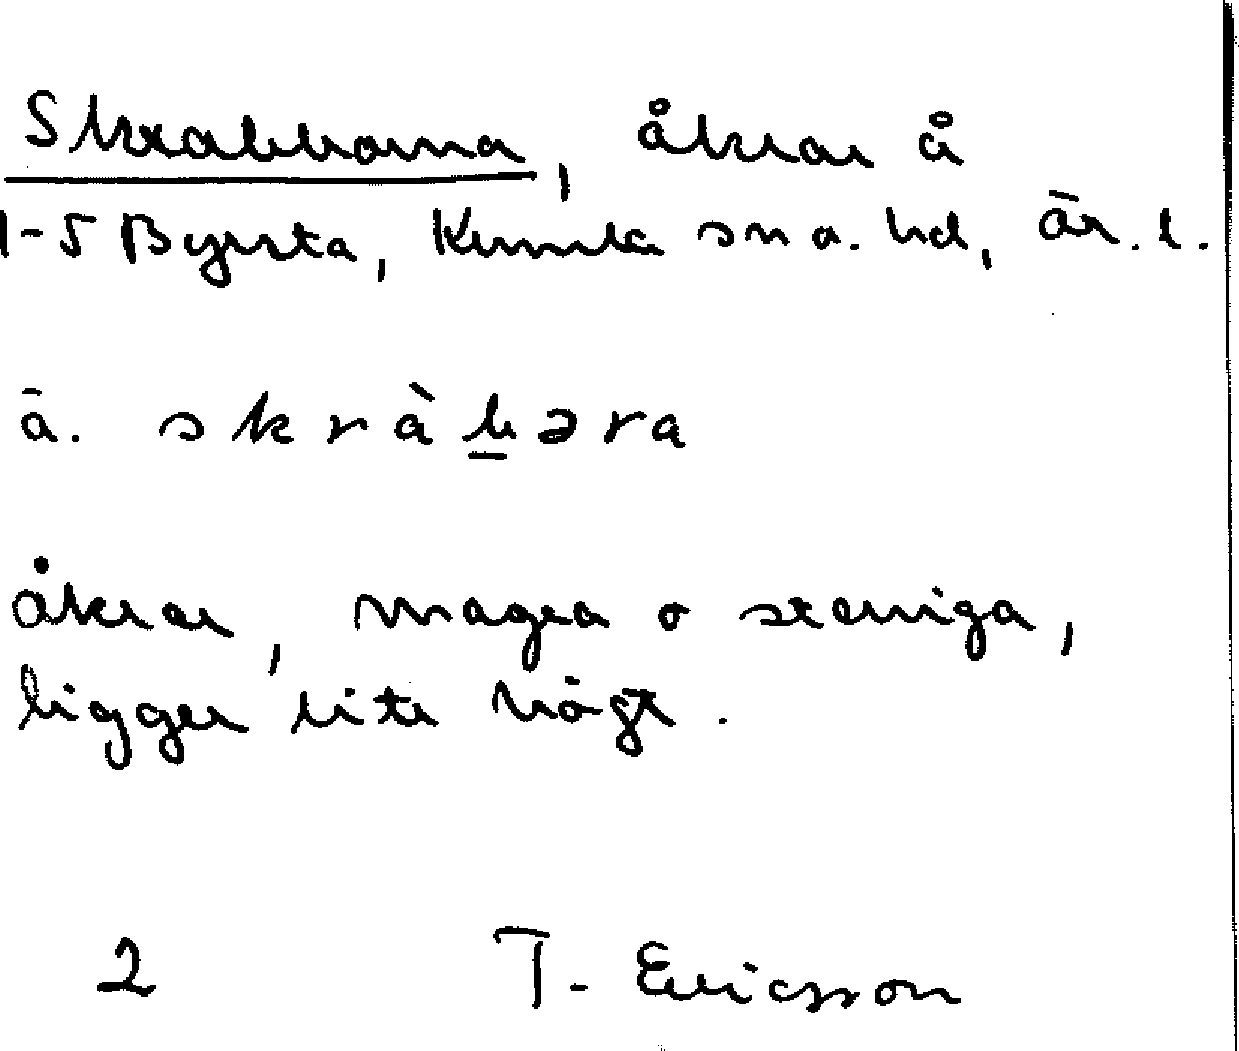 Skrabborna, åkrar å
1-5 Byrsta, Kumla sn o. hd, Ör. l.
ā. skràb̲əra
åkrar, magra o steniga,
ligger lite högt.
2 T. Ericsson